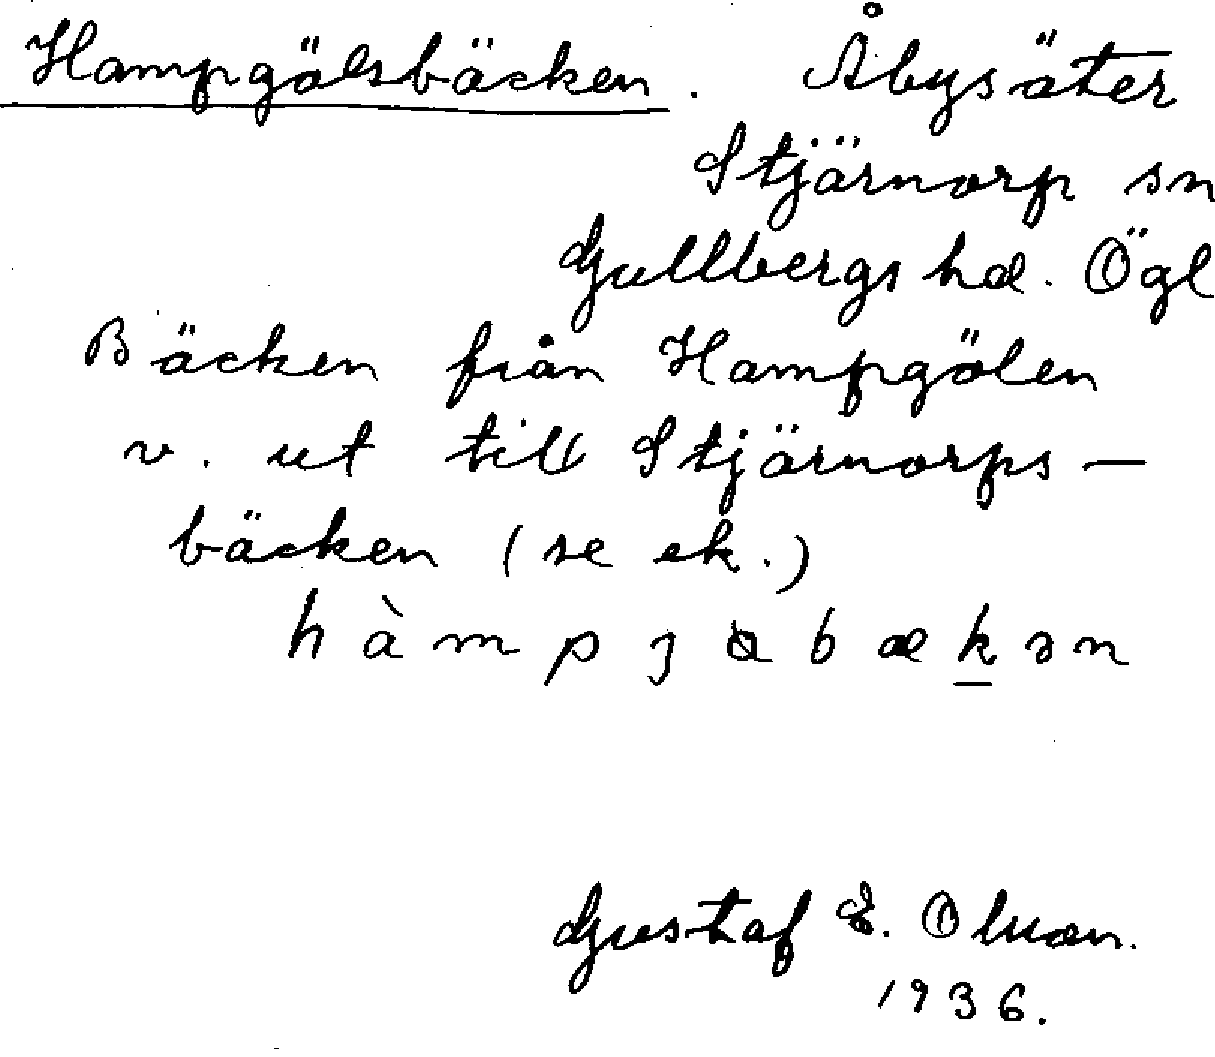 Hampgölsbäcken. Åbysäter
Stjärnorp sn
Gullbergs hd. Ögl
Bäcken från Hampgölen
v. ut till Stjärnorps-
bäcken (se ek.)
Gustaf E. Olsson.
1936.